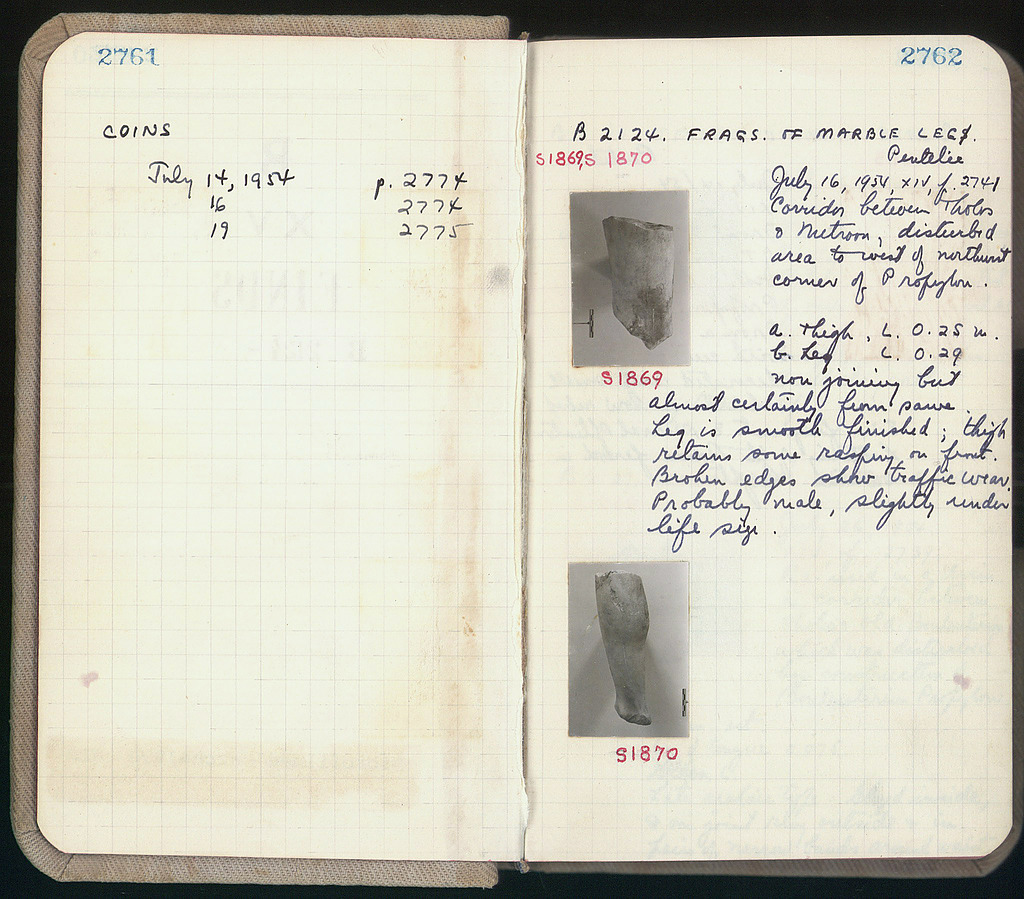 2761
COINS
July 14, 1954 p. 2774
16 2774
19 2775
2762
B 2124. FRAGS. OF MARBLE LEGS.
S1869, S 1870
Pentelic
July 16, 1954, XIV, p. 2741
Corridor between Tholos
& Metroon, disturbed
area to west of northwest
corner of Propylon.
a. thigh, L. 0.25 m.
b. Leg L. 0.29
S1869
non joining but
almost certainly from same.
Leg is smooth finished; thigh
retains some rasping on front.
Broken edges show traffic wear.
Probably male, slightly under
life size.
S1870